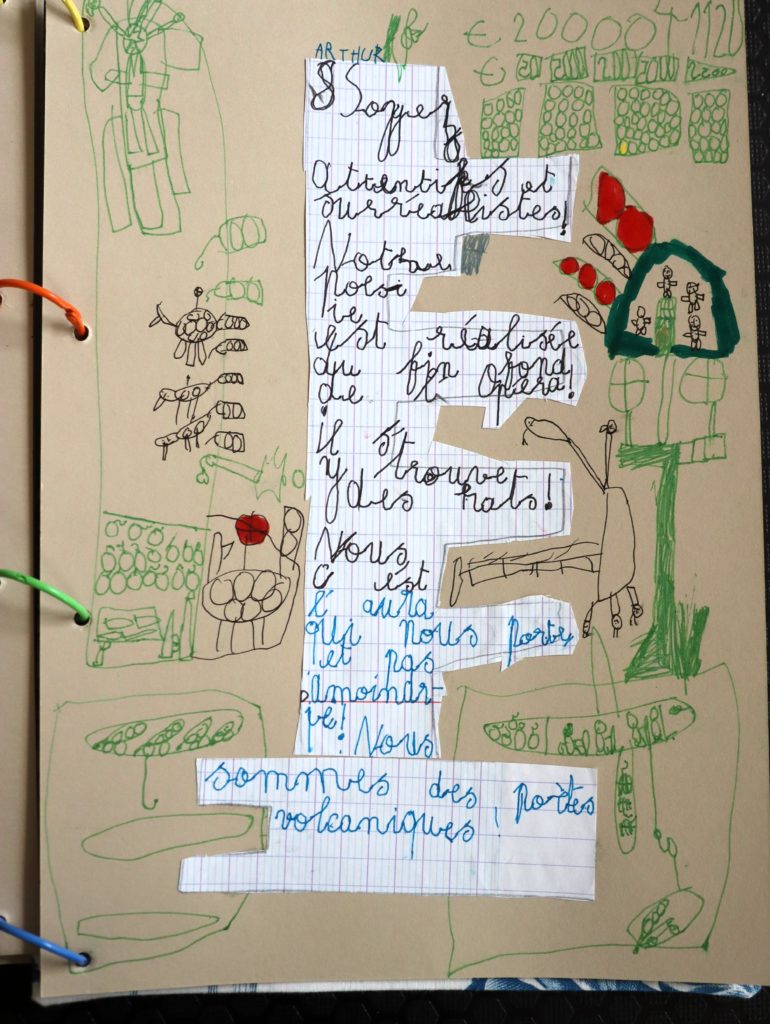 ARTHUR
€ 20000
€ 20
Soyez
attentifs et
surréalistes!
Notre
poési
ie
est réalisée
au fin fond
de l'Opéra!
il s'
y trouve
des rats!
Nous
c'est
l'aura
qui nous porte
et pas
amoinar-
pe! Nous
sommes des poètes
volcaniques!